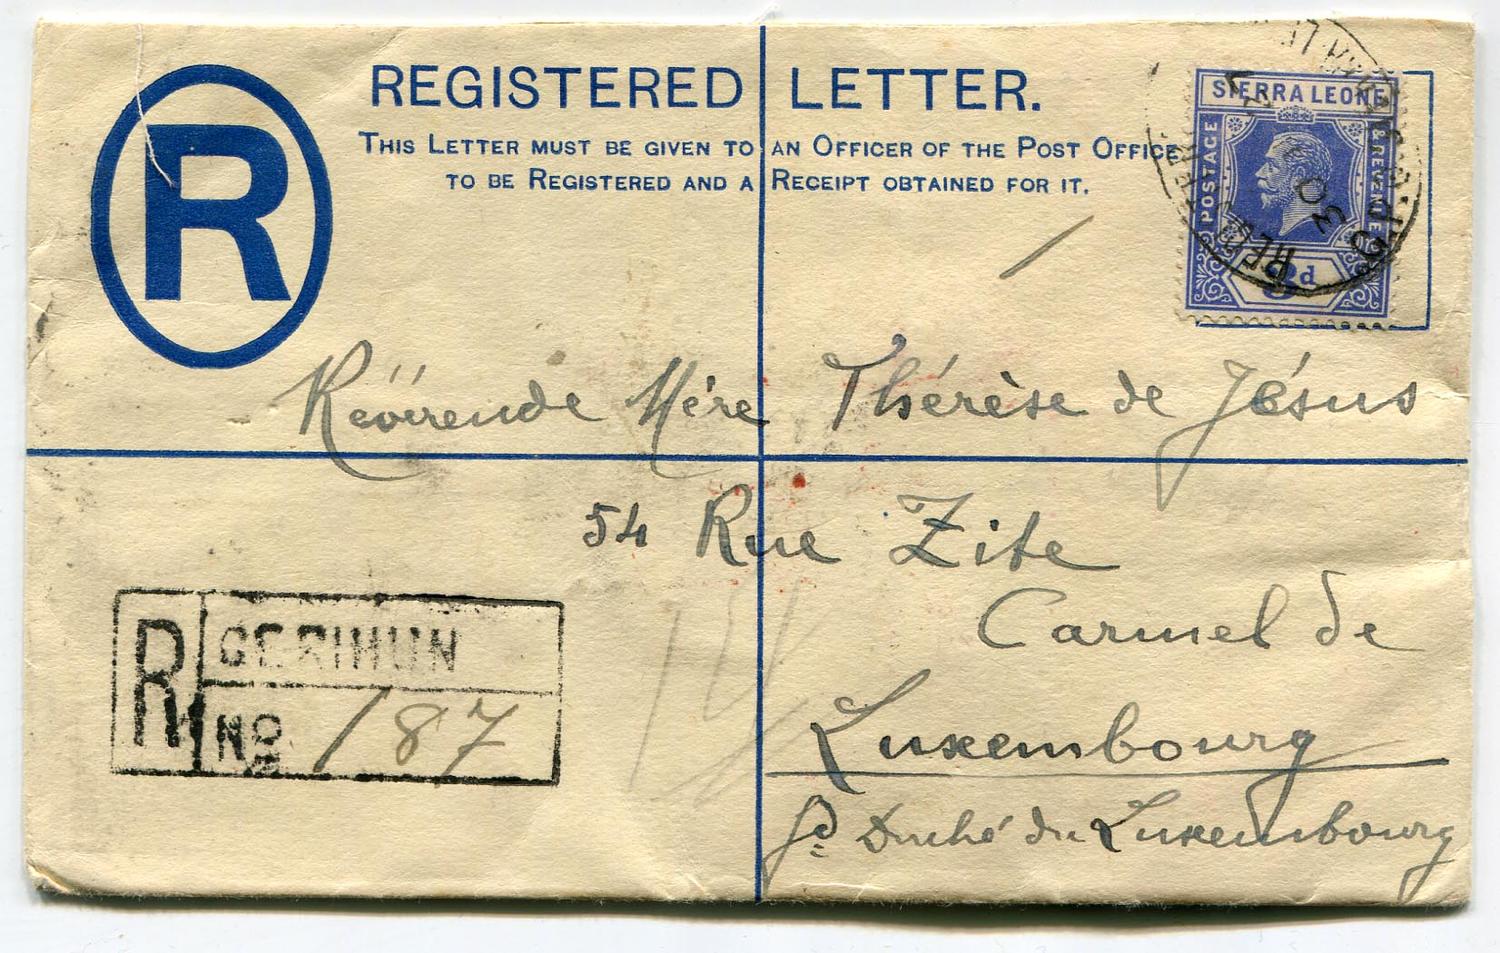 REGISTERED LETTER.
THIS LETTER MUST BE GIVEN TO AN OFFICER OF THE POST OFFICE
TO BE REGISTERED AND A RECEIPT OBTAINED FOR IT.
R
SIERRA LEONE
POSTAGE
& REVENUE
3d
REG
G.P.O
30
Révérende Mère Thérèse de Jésus
54 Rue Zite
Carmel de
Luxembourg
Gd Duché du Luxembourg
R
GERIHUN
No 187